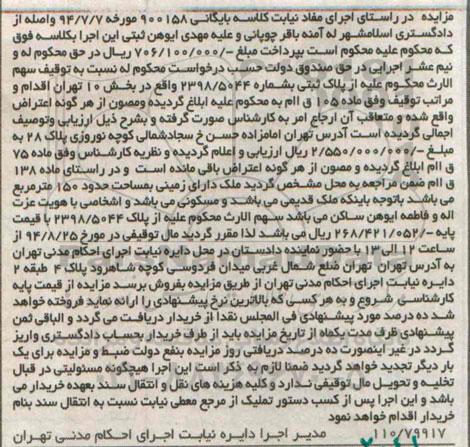 مزایده در راستای اجرای مفاد نیابت کلاسه بایگانی ۹۰۰۱۵۸ مورخه ۹۴/۷/۷ واصله از
دادگستری اسلامشهر له آمنه باقر چوپانی و علیه مهدی ایوهن ثبتی این اجرا بکلاسه فوق
که محکوم علیه محکوم است بپرداخت مبلغ -/۷۰۶/۱۰۰/۰۰۰ ریال در حق محکوم له و
نیم عشر اجرایی در حق صندوق دولت حسب درخواست محکوم له نسبت به توقیف سهم
الارث محکوم علیه از پلاک ثبتی بشماره ۲۳۹۸/۵۰۴۴ واقع در بخش ۱۰ تهران اقدام و
مراتب توقیف وفق ماده ۱۰۵ ق اام به محکوم علیه ابلاغ گردیده ومصون از هر گونه اعتراض
واقع شده و متعاقب آن ارجاع امر به کارشناس صورت گرفته و بشرح ذیل ارزیابی وتوصیف
اجمالی گردیده است آدرس تهران امامزاده حسن خ سجادشمالی کوچه نوروزی پلاک ۲۸ به
مبلغ -/۲/۵۵۰/۰۰۰/۰۰۰ ریال ارزیابی و اعلام گردیده و نظریه کارشناس وفق ماده ۷۵
ق اام ابلاغ گردیده و مصون از هر گونه اعتراض باقی مانده است و در راستای ماده ۱۳۸
ق اام ضمن مراجعه به محل مشخص گردید ملک دارای زمینی بمساحت حدود ۱۵۰ مترمربع
می باشد باتوجه باینکه ملک قدیمی می باشد و مسکونی می باشد و اشخاصی با هویت عزت
اله و فاطمه ایوهن ساکن می باشد سهم الارث محکوم علیه از پلاک ۲۳۹۸/۵۰۴۴ با قیمت
پایه -/۲۶۸/۴۲۱/۰۵۲ ریال می باشد لذا مقرر گردید مال توقیفی در مورخ ۹۴/۸/۲۵ از
ساعت ۱۲ الی ۱۳ با حضور نماینده دادستان در محل دایره نیابت اجرای احکام مدنی تهران
به آدرس تهران تهران ضلع شمال غربی میدان فردوسی کوچه شاهرود پلاک ۴ طبقه ۲
دایره نیابت اجرای احکام مدنی تهران از طریق مزایده بفروش برسد مزایده از قیمت پایه
کارشناسی شروع و به هر کسی که بالاترین نرخ پیشنهادی را ارائه نماید فروخته خواهد
شد ده درصد مورد پیشنهادی فی المجلس نقدا از خریدار دریافت می گردد و الباقی ثمن
پیشنهادی ظرف مدت یکماه از تاریخ مزایده باید از طرف خریدار بحساب دادگستری واریز
گردد در غیر اینصورت ده درصد دریافتی روز مزایده بنفع دولت ضبط و مزایده برای یک
بار دیگر تجدید خواهد گردید ضمنا لازم به ذکر است این اجرا هیچگونه مسئولیتی در قبال
تخلیه و تحویل مال توقیفی ندارد و کلیه هزینه های نقل و انتقال سند بعهده خریدار می
باشد و این اجرا پس از کسب دستور تملیک از مرجع معطی نیابت نسبت به انتقال سند بنام
خریدار اقدام خواهد نمود
۱۱۰/۷۹۹۱۷ مدیر اجرا دایره نیابت اجرای احکام مدنی تهران